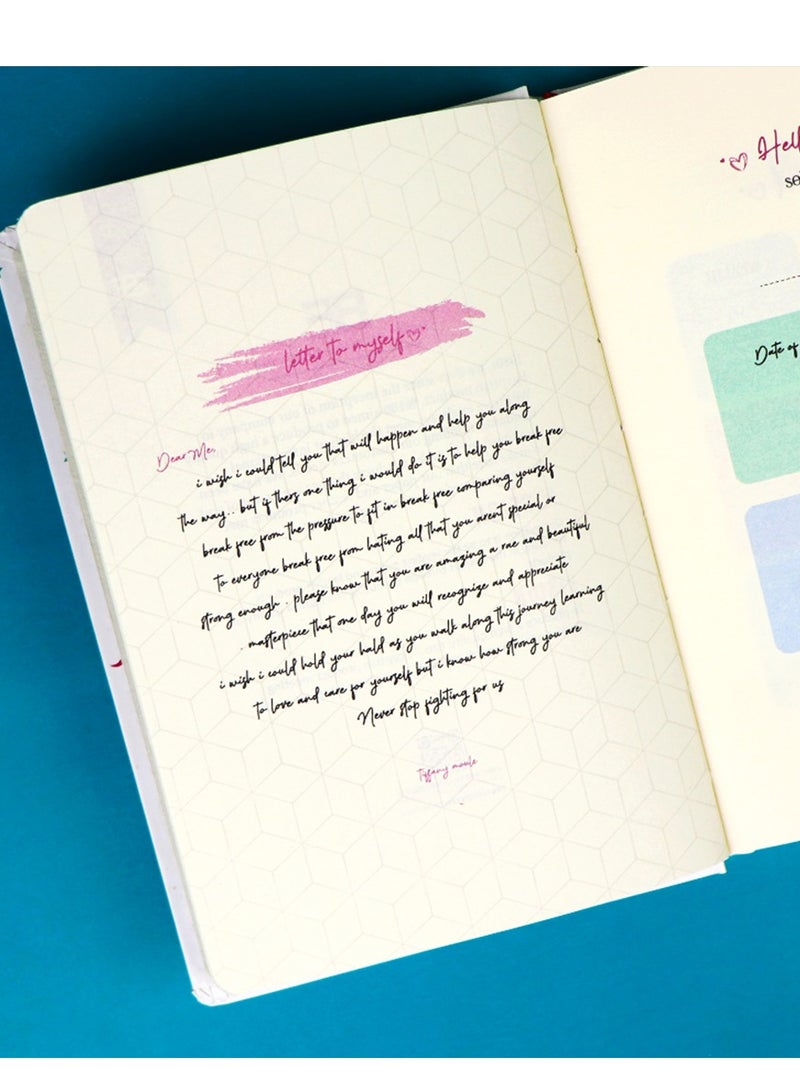 letter to myself
Dear Me,
i wish i could tell you that will happen and help you along
the way.. but if thers one thing i would do it is to help you break free
break free from the pressure to fit in break free comparing yourself
to everyone break free from hating all that you arent special or
strong enough . please know that you are amazing a rae and beautiful
. masterpiece that one day you will recognize and appreciate
i wish i could hold your hald as you walk along this journey learning
to love and care for yourself but i know how strong you are
Never stop fighting for us
tiffany
Hell
se
Date of